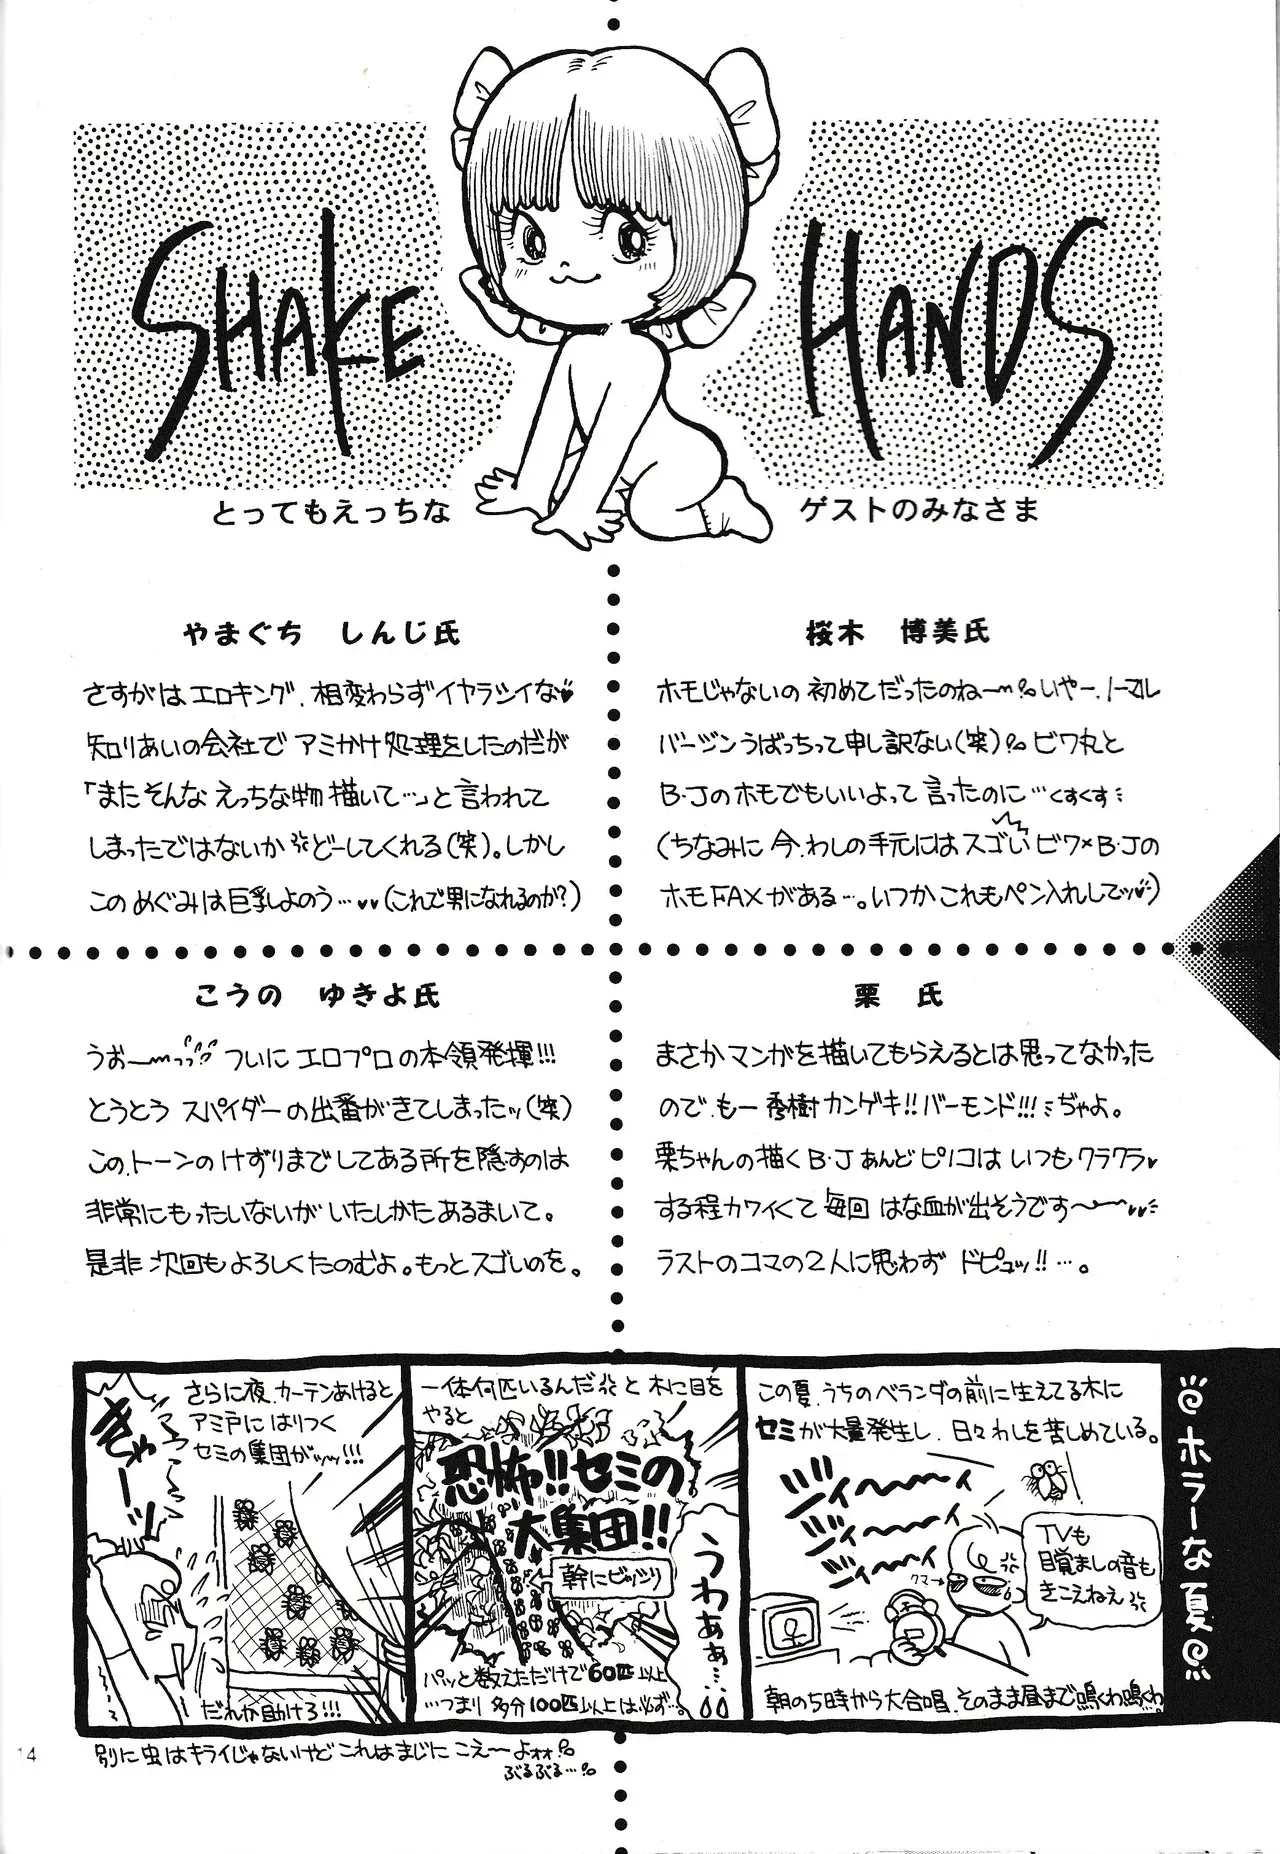 SHAKE HANDS
とってもえっちな
ゲストのみなさま
やまぐち しんじ氏
さすがはエロキング、相変わらずイヤラシイな♥
知りあいの会社でアミかけ処理をしたのだが
「またそんなえっちな物描いて…」と言われて
しまったではないか どーしてくれる(笑)。しかし
このめぐみは巨乳よのう…♥♥(これで男になれるのか?)
桜木 博美氏
ホモじゃないの初めてだったのね〜 いやー、ノーマル
バージンうばっちって申し訳ない(笑) ビワ丸と
B・Jのホモでもいいよって言ったのに…くすくす
(ちなみに今、わしの手元にはスゴいビワ×B・Jの
ホモFAXがある…。いつかこれもペン入れしてッ♥)
こうの ゆきよ氏
うお〜っっ ついにエロプロの本領発揮!!!
とうとうスパイダーの出番がきてしまったッ(笑)
この、トーンのけずりまでしてある所を隠すのは
非常にもったいないがいたしかたあるまいて。
是非次回もよろしくたのむよ。もっとスゴいのを。
栗 氏
まさかマンガを描いてもらえるとは思ってなかった
ので、もー秀樹カンゲキ!!バーモンド!!!ぢゃよ。
栗ちゃんの描くB・Jあんどピノコはいつもクラクラ♥
する程カワイくて毎回はな血が出そうです〜♥♥
ラストのコマの2人に思わずドピュッ!!…。
ホラーな夏
この夏、うちのベランダの前に生えてる木に
セミが大量発生し、日々わしを苦しめている。
ジィ〜〜ィ
ジィ〜〜ィ
ジィ〜〜ィ
クマ→
TVも
目覚ましの音も
きこえねぇ
朝の5時から大合唱、そのまま昼まで鳴くわ鳴くわ。
一体何匹いるんだ と木に目を
やると
恐怖!!セミの
大集団!!
幹にビッシリ
うわあぁ…
パッと数えただけで60匹以上
…つまり多分100匹以上は必ず…。
さらに夜、カーテンあけると
アミ戸にはりつく
セミの集団がッッ!!!
きゃーッ
だれか助けろ!!!
別に虫はキライじゃないけどこれはまじにこえーよォォ
ぶるぶる…
14